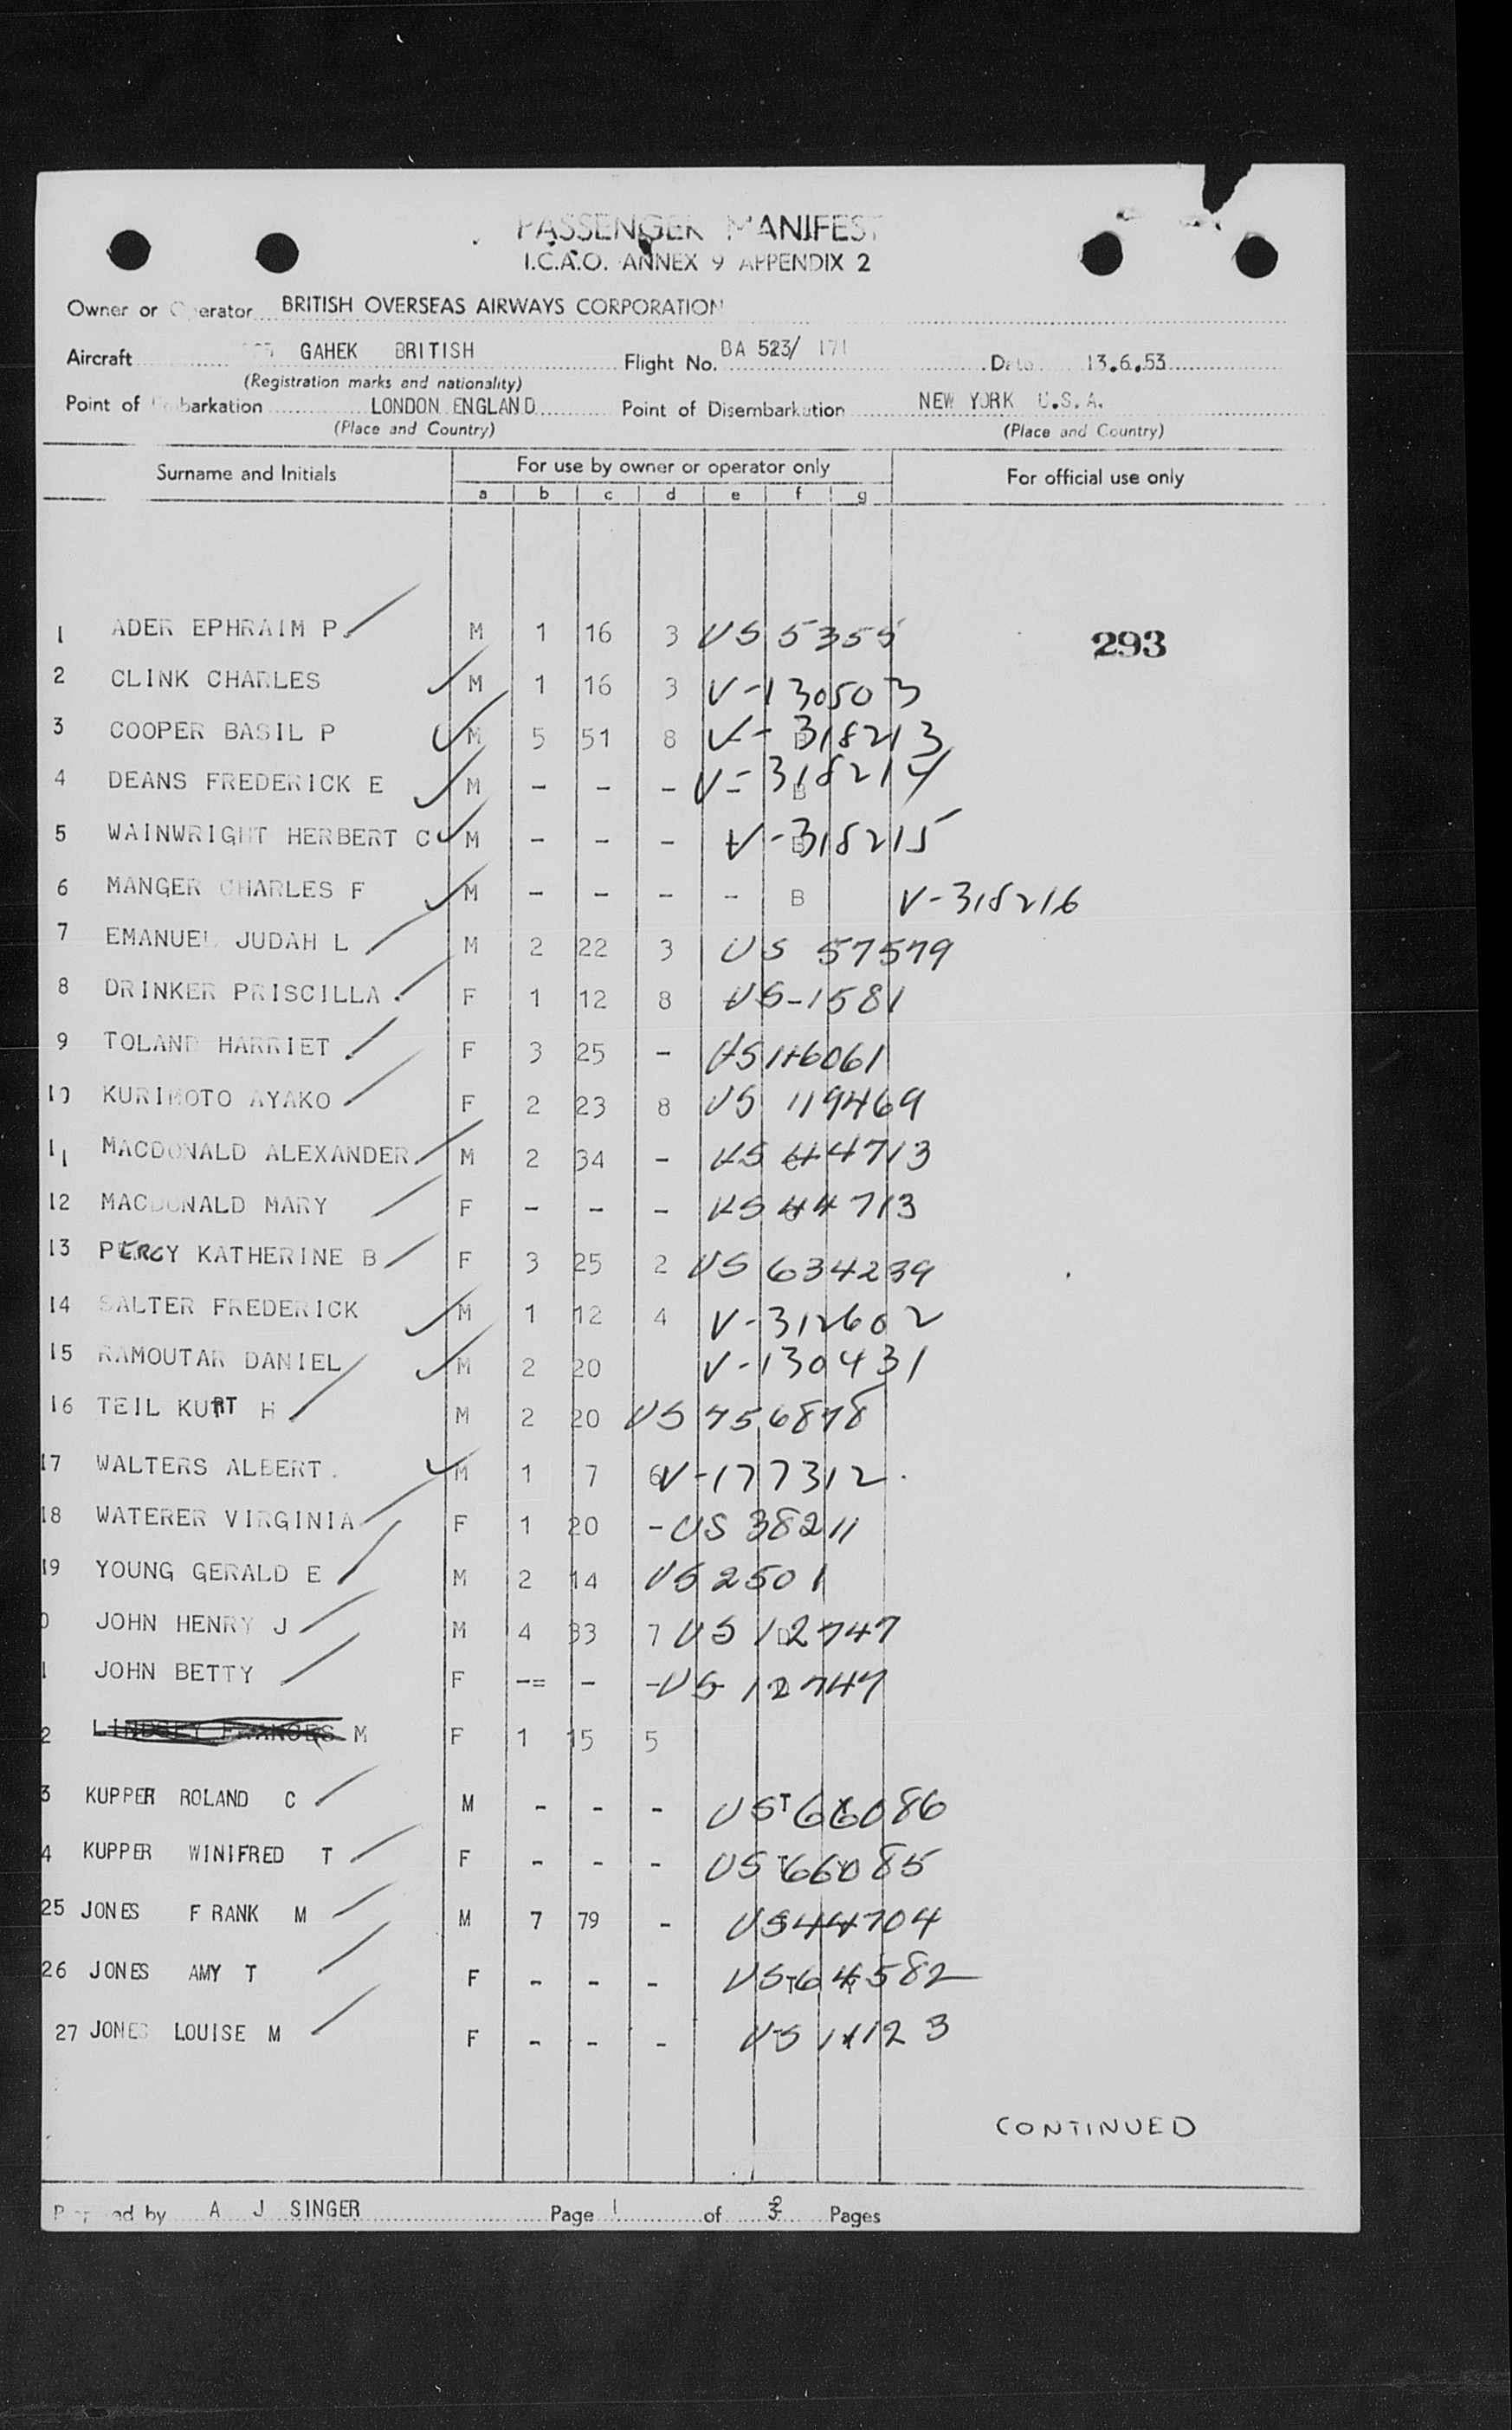 PASSENGER MANIFEST
I.C.A.O. ANNEX 9 APPENDIX 2
Owner or Operator BRITISH OVERSEAS AIRWAYS CORPORATION
Aircraft GAHEK BRITISH Flight No. BA 523/ 171 Date 13.6.53
(Registration marks and nationality)
Point of Embarkation LONDON ENGLAND Point of Disembarkation NEW YORK U.S.A.
(Place and Country) (Place and Country)
Surname and Initials For use by owner or operator only For official use only
a b c d e f g
1 ADER EPHRAIM P. M 1 16 3 US 5355 293
2 CLINK CHARLES M 1 16 3 V-130503
3 COOPER BASIL P M 5 51 8 V-318213
4 DEANS FREDERICK E M - - - V-318214
5 WAINWRIGHT HERBERT C M - - - V-318215
6 MANGER CHARLES F M - - - - B V-318216
7 EMANUEL JUDAH L M 2 22 3 US 57579
8 DRINKER PRISCILLA. F 1 12 8 US-1581
9 TOLAND HARRIET F 3 25 - US 116061
10 KURIMOTO AYAKO F 2 23 8 US 119469
11 MACDONALD ALEXANDER M 2 34 - US 44713
12 MACDONALD MARY F - - - US 44713
13 PERCY KATHERINE B F 3 25 2 US 634239
14 SALTER FREDERICK M 1 12 4 V-312602
15 RAMOUTAR DANIEL M 2 20 V-130431
16 TEIL KURT H M 2 20 US 756878
17 WALTERS ALBERT. M 1 7 6 V-177312.
18 WATERER VIRGINIA F 1 20 - US 38211
19 YOUNG GERALD E M 2 14 US 2501
0 JOHN HENRY J M 4 33 7 US 12747
1 JOHN BETTY F -= - - US 12747
2 LINDSEY FRANCES M F 1 15 5
3 KUPPER ROLAND C M - - - US 66086
4 KUPPER WINIFRED T F - - - US 66085
25 JONES FRANK M M 7 79 - US 44704
26 JONES AMY T F - - - US 64582
27 JONES LOUISE M F - - - US 11123
CONTINUED
Prepared by A J SINGER Page 1 of 3 Pages